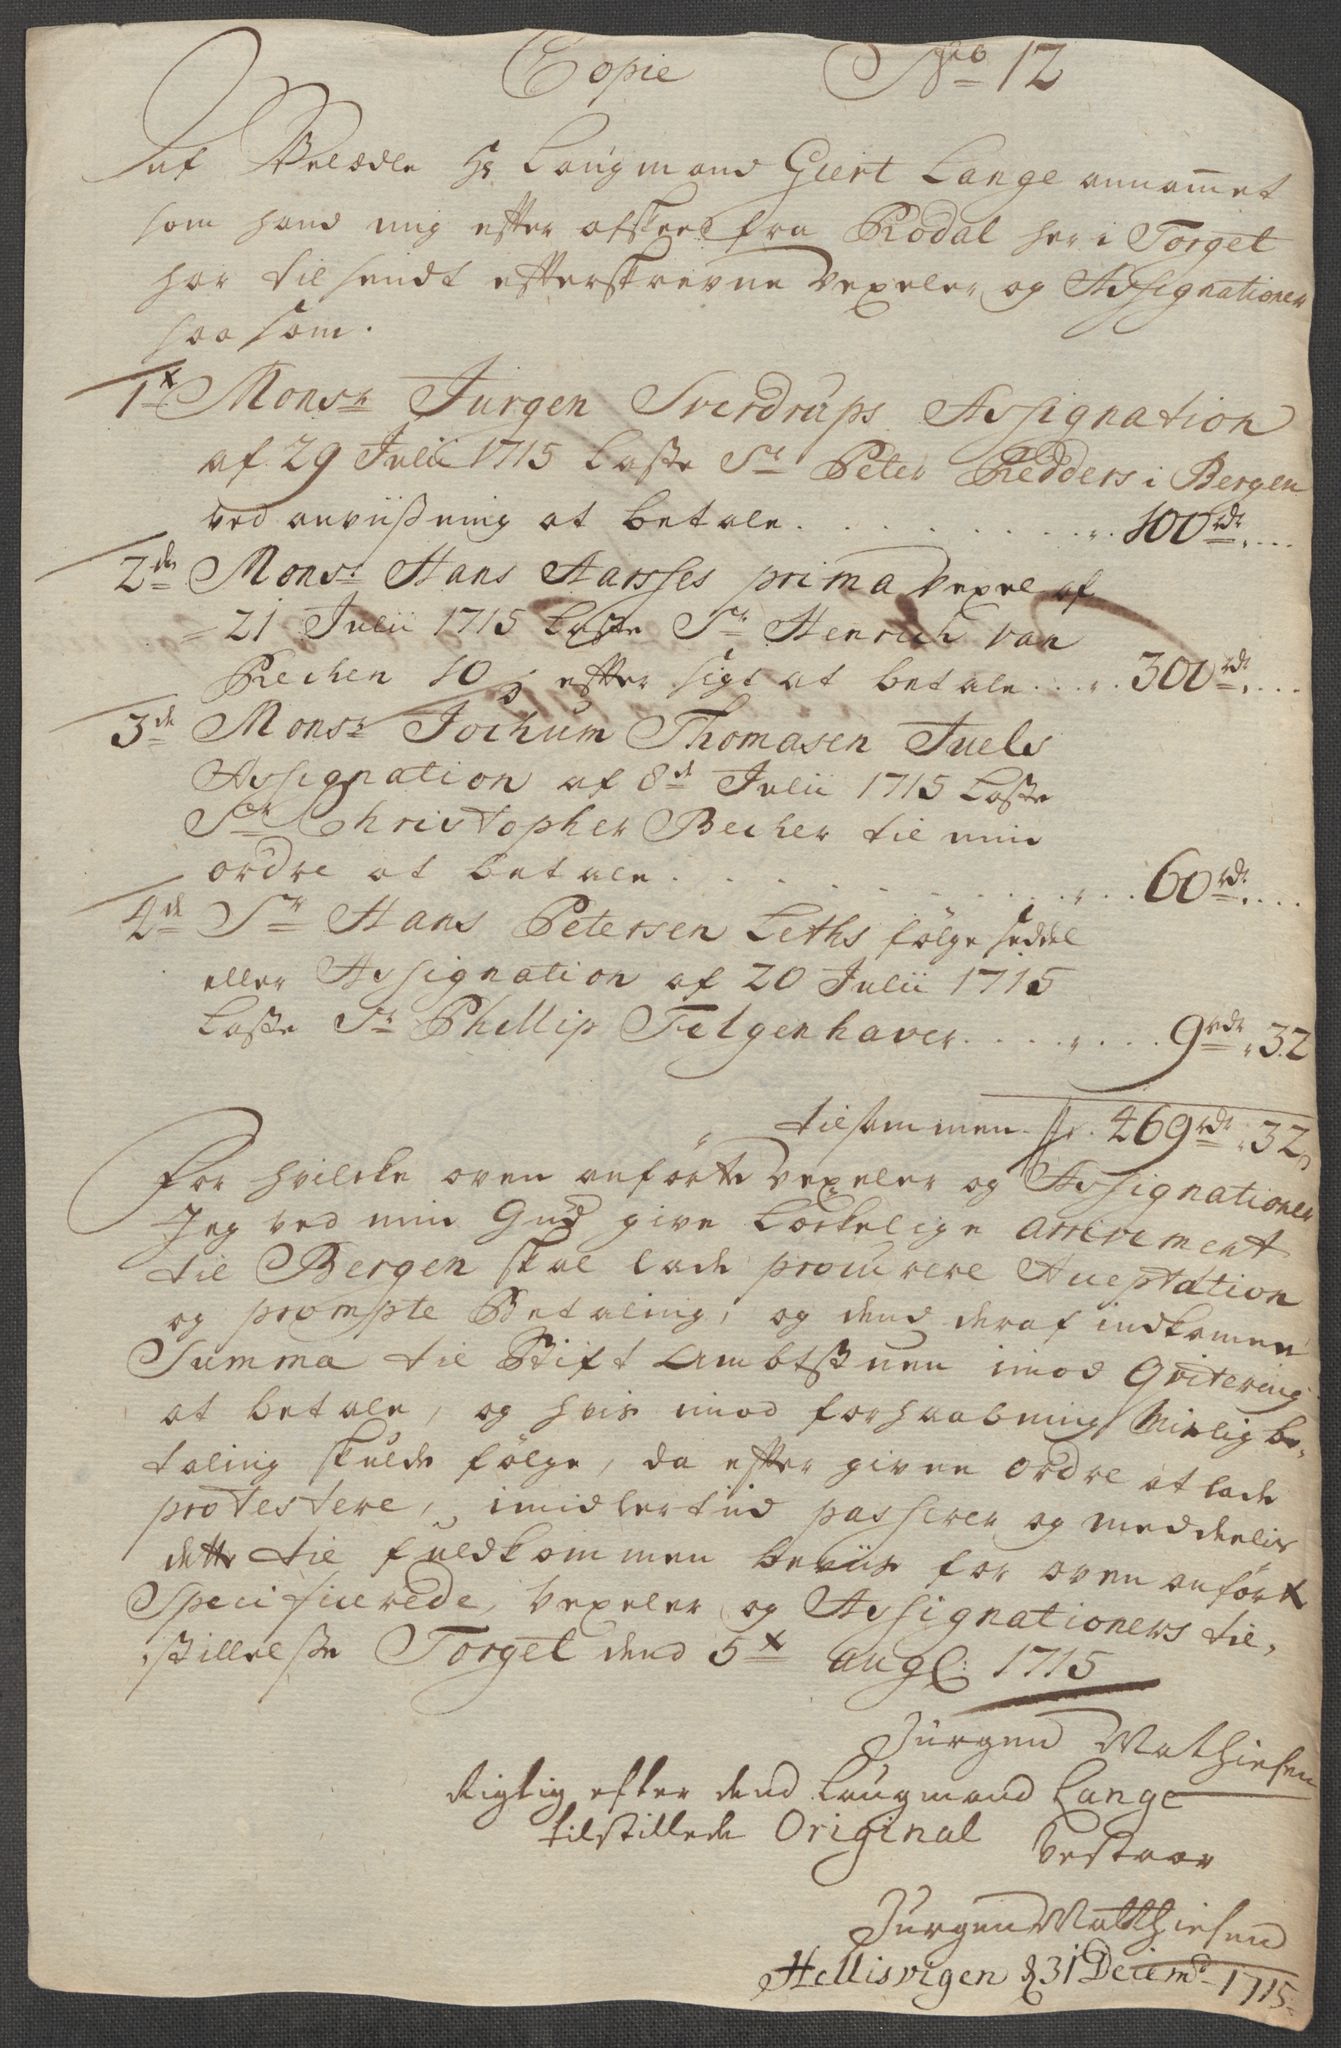 Copie No 12
Af Velædle Hr Laugmand Giert Lange annammet
som hand mig efter afskeed fra Rødal her i Torget
har tilsendt efterskrevne vexeler og Assignationer
saasom.
1 Monsr Jurgen Sverdrups Assignation
af 29 Julii 1715 Laste Sr Peter Redders i Bergen
ved anviisning at betale . . . 100 rdr
2de Monsr Hans Aasses prima vexel af
21 Julii 1715 Laste Sr Henrich van
Rechen 10 efter sigt at betale . . . 300 rdr
3de Monsr Jochum Thomasen Juels
Assignation af 8de Julii 1715 Laste
Sr Christopher Becher til min
ordre at betale . . . 60 rdr
4de Sr Hans Petersen Leths følge seddel
eller Assignation af 20 Julii 1715
Laste Sr Phillip Felgenhaver . . . 9 rdr 32
tilsammen 469 rdr 32
For hvilcke oven anførte vexeler og Assignationer
Jeg ved min Gud give Lÿckelige arrivement
til Bergen skal lade procurere Acceptation
og prompte Betaling, og dend deraf indkomen
Summa til Stift Ambtstuen imod Qvitering
at betale, og hvis imod forhaabning Mislig be-
taling skulde følge, da efter given ordre at lade
protestere, imidlertiid passerer og meddeelis
dette til fuldkommen beviis for oven anført
Specificerede, vexeler og Assignationers til-
stillelse Torget dend 5 aug: 1715
Jürgen Mathiesen
Rigtig efter dend Laugmand Lange
tilstillede Original bestaar
Jürgen Matthiesen
Hellisvigen d 31 Decembr 1715